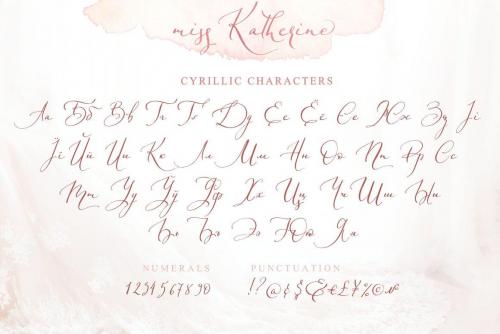 miss Katherine
CYRILLIC CHARACTERS
Аа Бб Вв Гг Ґґ Дд Ее Ёё Єє Жж Зз Іі
Її Йй Ии Кк Лл Мм Нн Оо Пп Рр Сс
Тт Уу Ўў Фф Хх Цц Чч Шш Ыы
Ьь Ъъ Ээ Юю Яя
NUMERALS PUNCTUATION
1234567890 !?@¢$&€£¥%©№